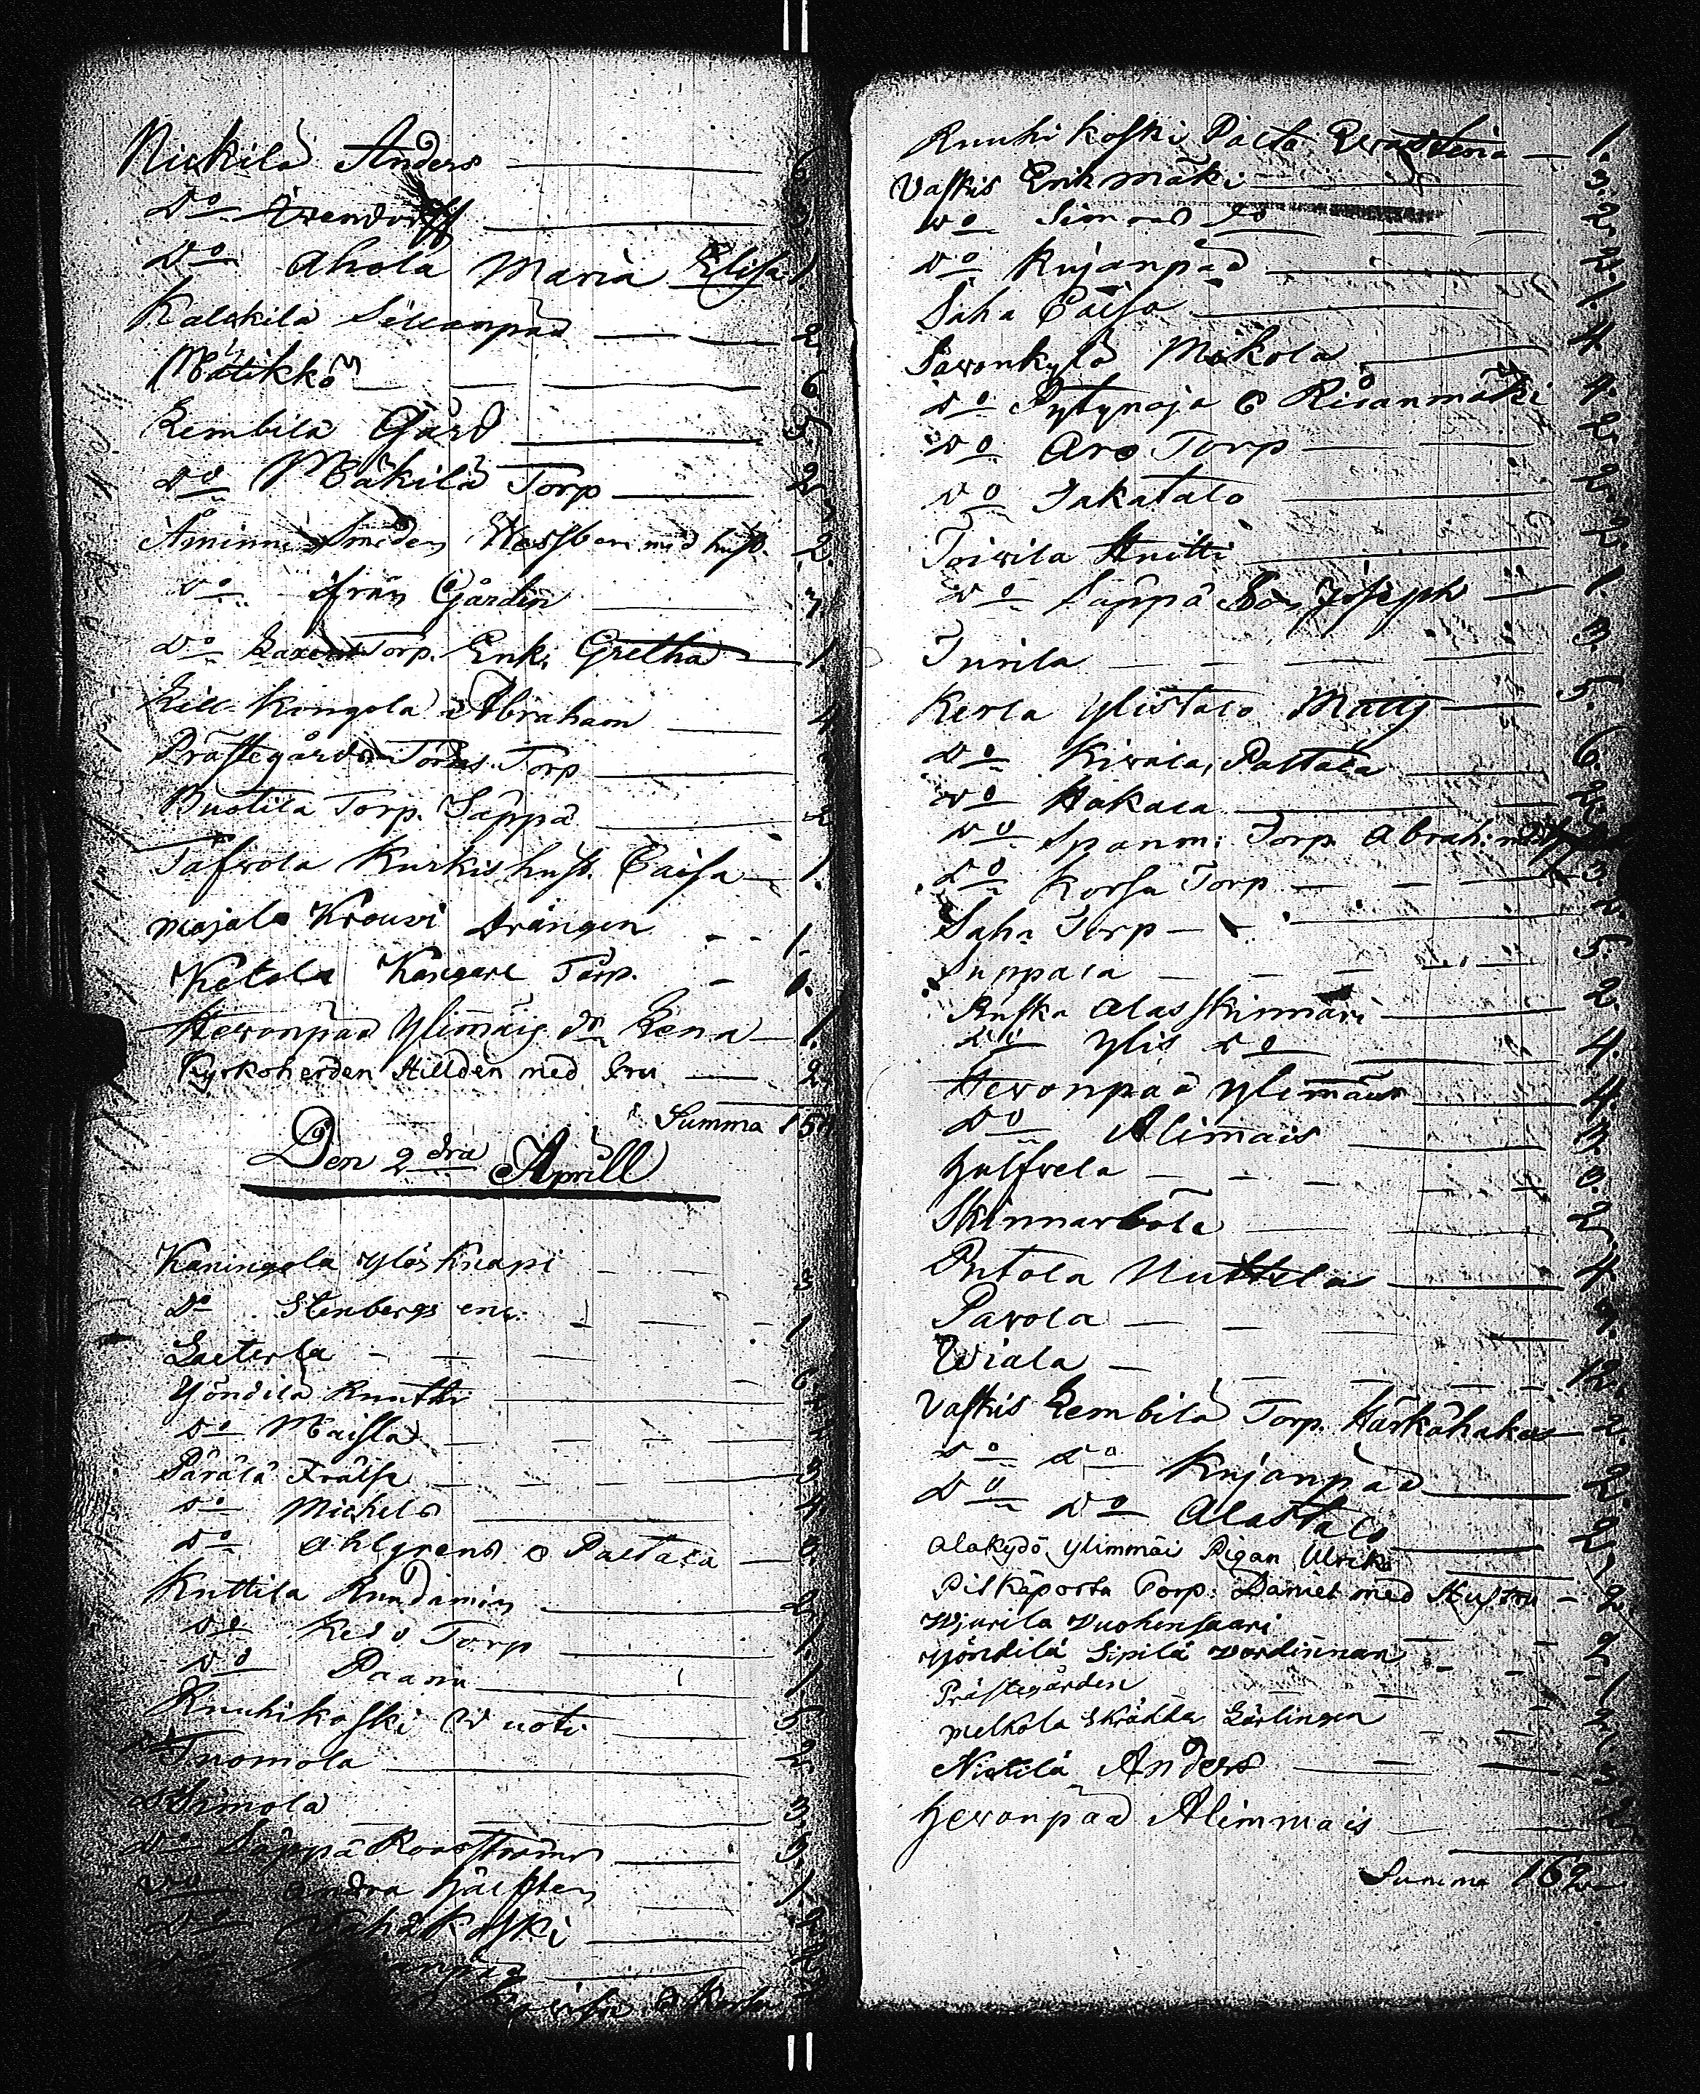 Nickilä Anders — 6
Do — 3
Do Ahola Maria Elisa 1
Kalckila Sillanpää — 2
Mätikkö — 6
Lembilä Gård — 5
Do Mäkilä Torp — 2
Åminne Smeden med hust. 2
Do ifrån Gården — 7
Do Torp. Enk. Gretha — 1
Kill Kongola Abraham — 4
Prästegårds Torp —
Buotila Torp. Säppä — 2
Tafwola Kurkis hust. Caisa — 1.
Majala Krouvi Drängen - - 1.
Ketola Kangare Torp. - 1.
Hewonpää Ylimäis dr Lena — 1.
Kyrkoherden Hilldén med Fru — 2
Summa 15
Den 2dra Aprill
Kaningola Ylös Knapi - - 3
Do Stenbergs enk. - - - 1
Laeterla - - — 6
Yöndilä Knutti —
Do Maisla —
Pärälä Frälse — 3
Do Michels — 4
Do Ahlgrens o Paltala —
Kuttila Rundamin — 2
Do Kedo Torp — 1.
Do Paanu — 1
Ruuhikoski Wuoti — 5
Do Tuomola — 2.
Do Simola — 3.
Do Säppä — 3.
Do andra hälften — 1.
Do —
Do —
Ruuhikoski Palta — 1.
Vaskis Erik Mäki — 3.
Do Simons Do — 2.
Do Kujanpää — 2.
Saha Caisa — 1.
Sawonkylä Mikola — 4
Do Pytynoja o Risanmäki 4.
Do Aro Torp — 2.
Do Jakatalo — 2.
Toivila Anitti — 2.
Do Säppä Son Joseph — 1.
Junila — 3.
Kerla Ylistalo Matts — 5.
Do Kiwala, Paltala — 6.
Do Hakala — 2.
Do Spanm: Torp Abrah:
Do Korsu Torp — 3.
Saha Torp — 2.
Suppala — 5.
Ruska Alasskinnari — 2.
Do Ylis Do — 4.
Hewonpää Ylimmäis — 4.
Do Alimais — 3.
Hulfvela — - -
Skinnarböle — 2.
Putola Nuttilas — 4.
Pavola —
Wiala — 12.
Vaskis Lembilä Torp. Härkähakas — 2.
Do Do Kujanpää — 2.
Do Do Alastalo — 2.
Alakydö Ylimmäi Pigan Ulrika —
Pitkäporta Torp: Daniel med Hustru - 2
Wjurila Vuohensaari
Yjöndilä Sipilä Värdinnan - - 2
Prästegården - 1
Melkola Skrädda Lärlingen — 2.
Nikilä Anders —
Hewonpää Alimmais —
Summa 162